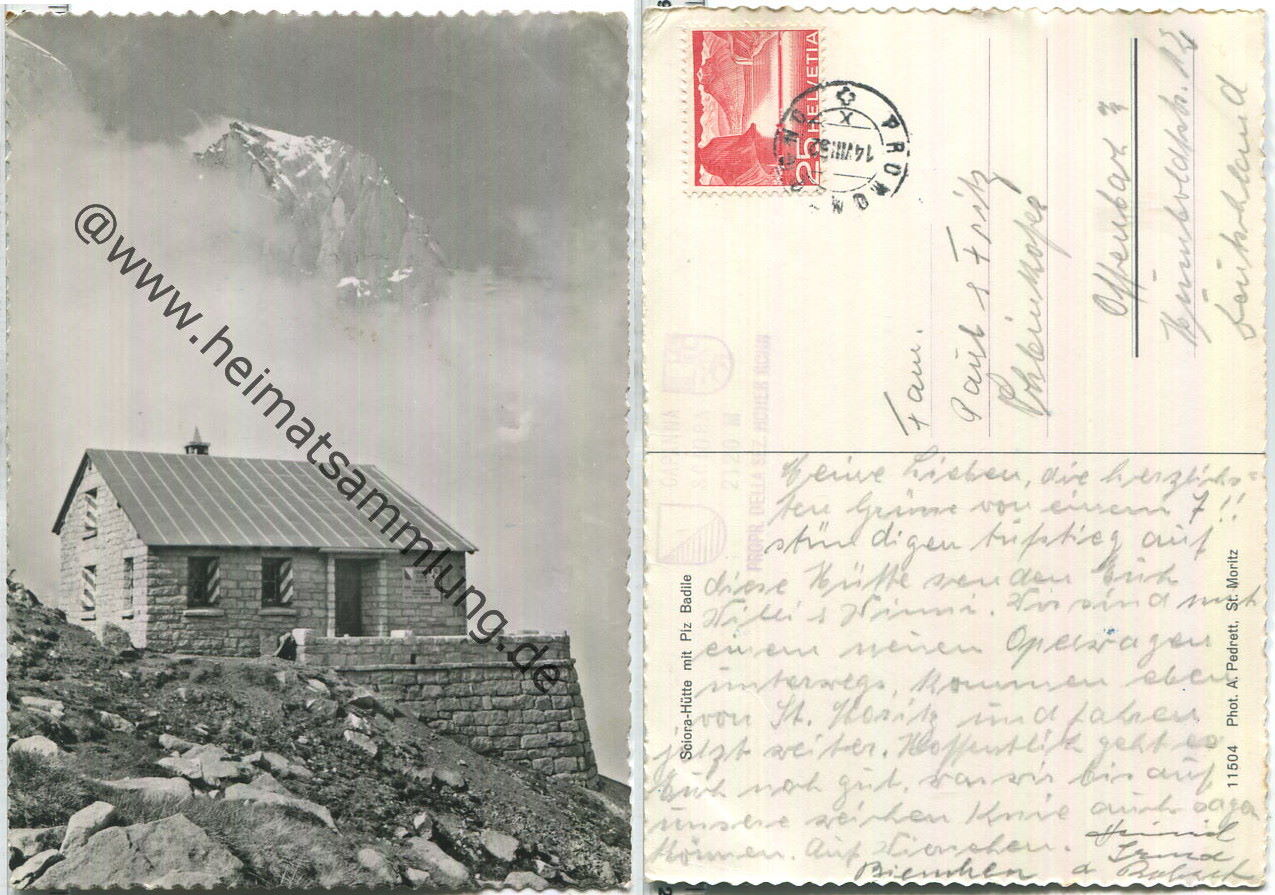 @www.heimatsammlung.de
25 HELVETIA
PROMONTOGNO
14.VIII.52
Fam.
Paul & Fritz
Offenbach a/M
Humboldtstr. 12
Deutschland
CAPANNA
SCIORA
2120 M
PROPR. DELLA SEZ. HOHER ROHN
Meine Lieben, die herzlichs-
ten Grüsse von einem 7!!
stündigen Aufstieg auf
diese Hütte senden Euch
Willi & Minni. Wir sind mit
einem neuen Opelwagen
unterwegs, kommen eben
von St. Moritz und fahren
jetzt weiter. Hoffentlich geht es
Euch noch gut, was wir bis auf
unsere weichen Knie auch sagen
können. Auf Wiersehen.
Bienchen
Sciora-Hütte mit Piz Badile
11504 Phot. A. Pedrett, St. Moritz